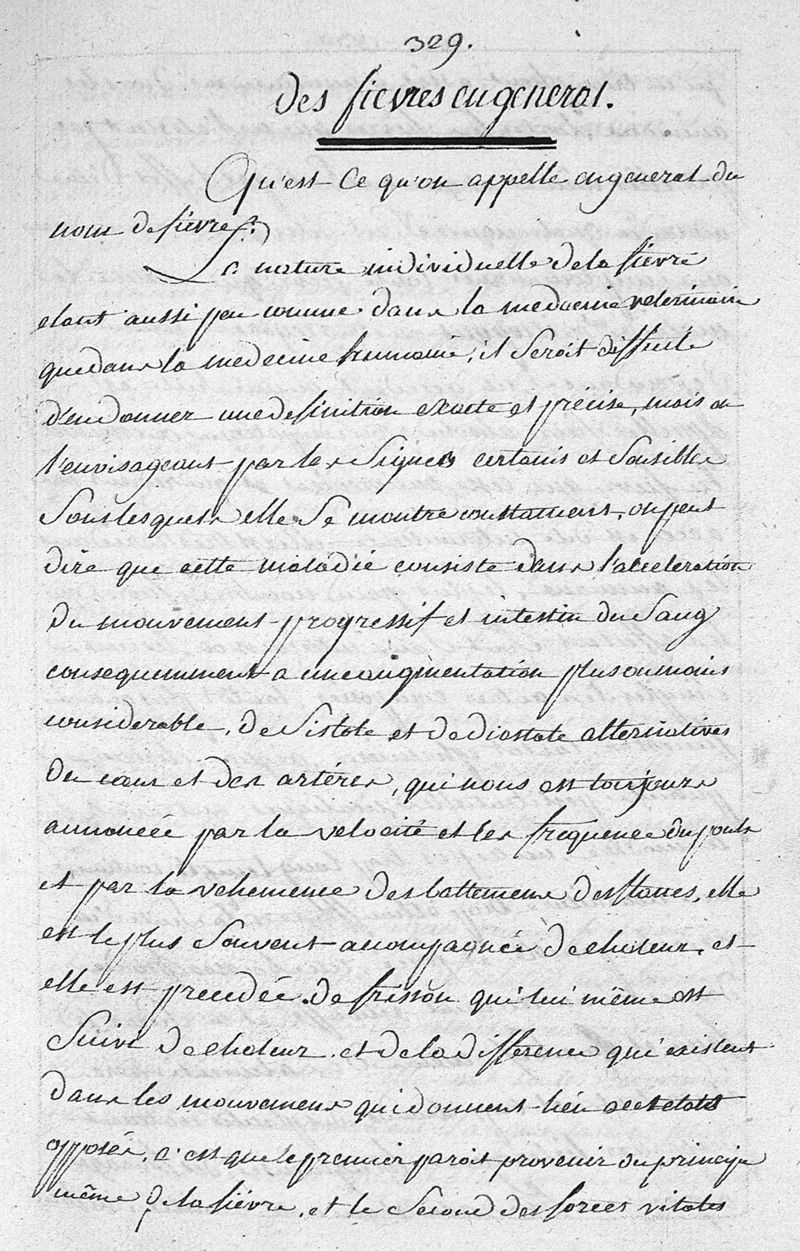 329.
Des fievres en general.
Qu'est Ce qu'on appelle en general du
nom de fievre?
La nature individuelle de la fievre
etant aussi peu connue dans la medecine veterinaire
que dans la medecine humaine, il Seroit difficile
d'en donner une definition exacte et precise, mais en
l'envisageant par les Signes certains et Sensibles
Sous lesquels elle Se montre constament, on peut
dire que cette maladie consiste dans l'acceleration
du mouvement progressif et intestin du Sang
consequemment a une augmentation plus ou moins
considerable, de Sistole et de diastole alternatives
du cœur et des artères, qui nous est toujours
annoncée par la velocité et les frequence du pouls
et par la vehemence des battemens des flancs, elle
est le plus Souvent accompagnée de chaleur, et
elle est precedée de frisson qui lui même est
Suivi de chaleur, et de la difference qui existent
dans les mouvemens qui donnent lieu a cet etats
opposés, c'est que le premier paroit provenir du principe
même de la fièvre, et le Second des forces vitales